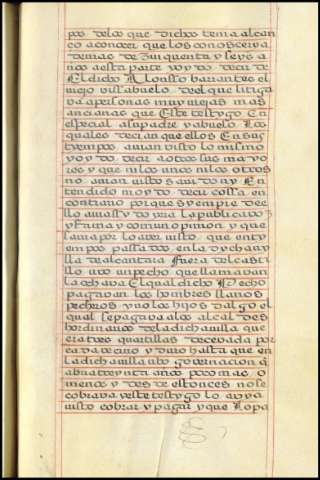 pos delos que dichos tema alcan
co a conocer que los conosceria
demas de zinquenta y seys a
nos a esta parte y oyo decir de
El dicho Alonsso barrantes el
viejo vissabuelo del que litiga
va a personas muy viejas mas
ancianas que este testygo En
especial a su padre y abuelo Los
quales decian que ellos En sus
tyempos avian visto lo mismo
y oydo decir a otros sus mayo
res y que ni los unos ni los otros
no avian visto savido ny En
tendido ni oydo decir cossa en
contrario porque syempre de e
llo avia ssydo y era la publica voz
y fama y comun opinion y que
avia visto que en ty
enpos passados en la dycha vy
lla de alcantara fuera del casti
llo uvo un pecho que llamavan
la ochava El qual dicho Pecho
pagavan los hombres llanos
pecheros y no los hijos dalgo el
qual se pagava a los alcaldes
hordinarios de la dicha villa que
era tres quartillas de cevada por
cada vecino y duro hasta que en
la dicha villa ubo governacion q
abra treynta años poco mas o
menos y desde estonces no se
cobrava y este testygo lo avya
visto cobrar y pagar y que Lo pa